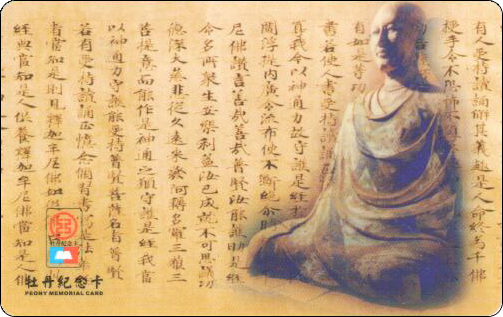 有人受持讀誦解其義趣是人命終為千佛
授手令不恐怖不
書若使人書受持讀誦
我今以神通力故守護是經
閻浮提内廣令流布使不斷絕
尼佛讚言善哉善哉普賢汝能護助是經
令多所衆生安樂利益汝已成就不可思議功
德深大慈悲從久遠來發阿耨多羅三藐三
菩提意而能作是神通之願守護是經我當
以神通力守護能受持普賢菩薩名者普賢
若有受持讀誦正憶念修習書寫是法華
者當知是則見釋迦牟尼佛如從
經典當知是人供養釋迦牟尼佛當知是人佛
牡丹纪念卡
牡丹纪念卡
PEONY MEMORIAL CARD